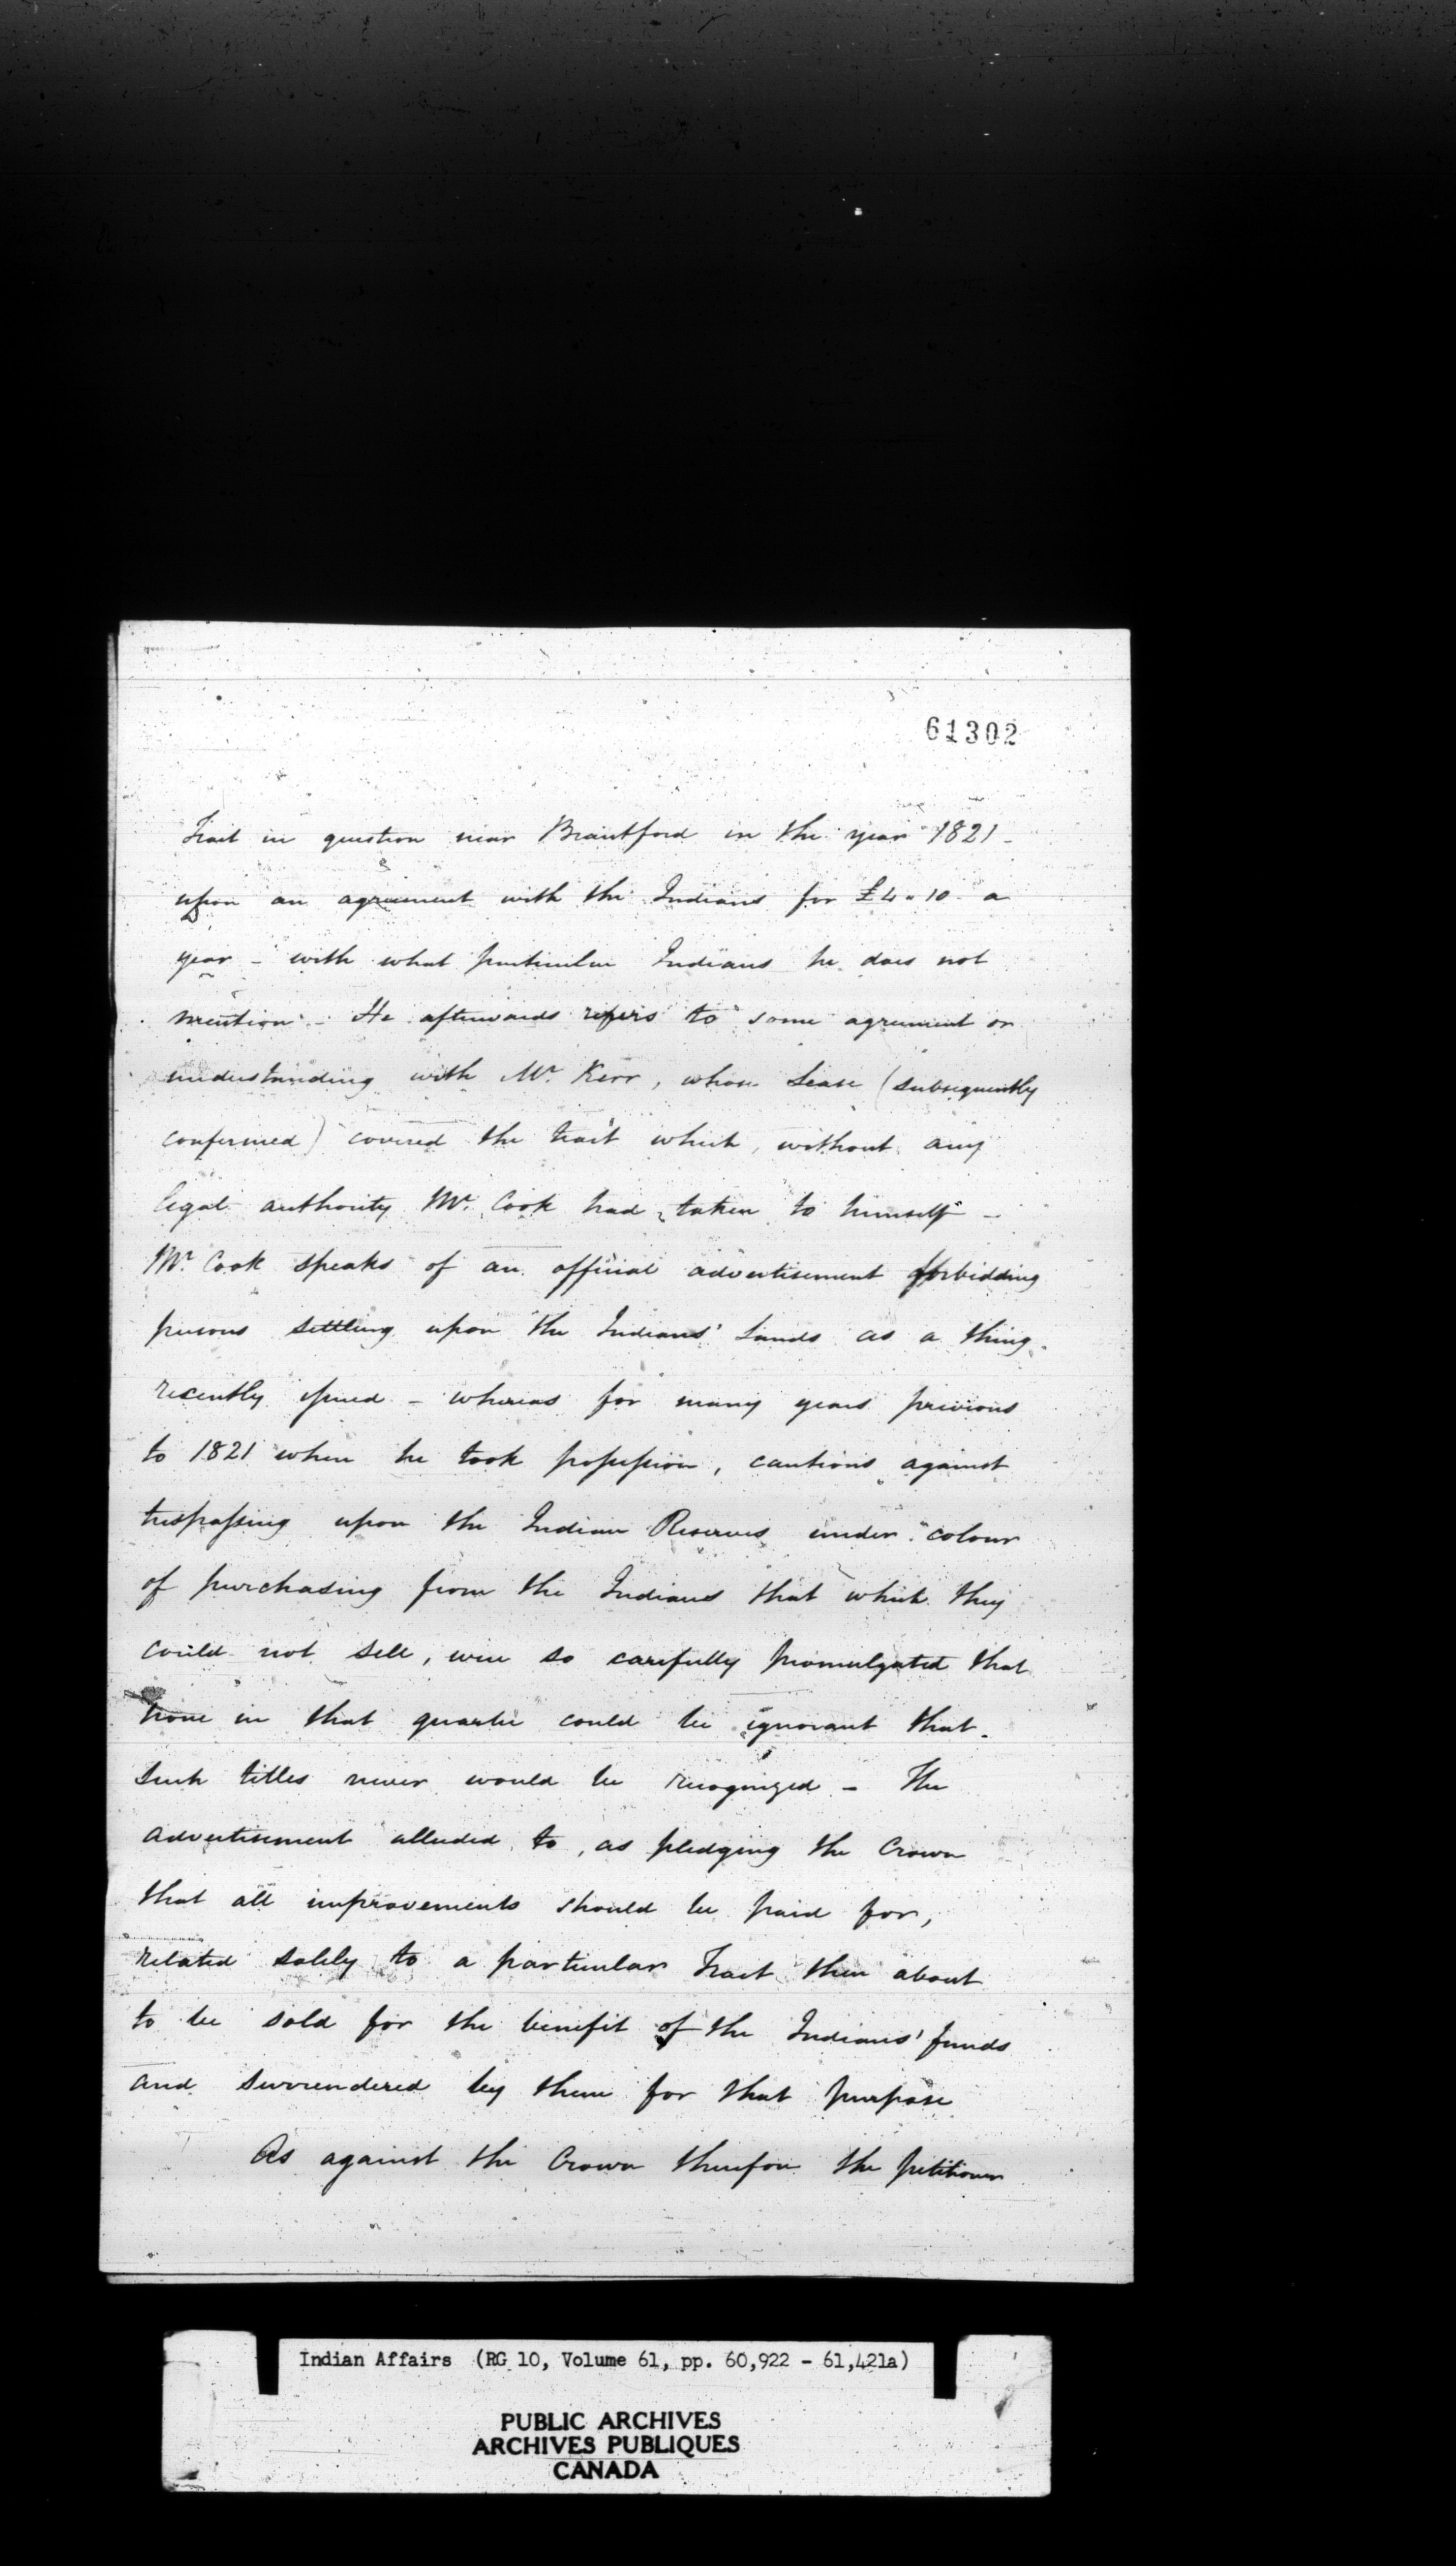 61302
Tract in question near Brantford in the year 1821 -
upon an agreement with the Indians for £4"10 - a
year - with what particular Indians he does not
mention - He afterwards refers to some agreement or
understanding with Mr. Kerr, whose Lease (subsequently
confirmed) covered the tract which, without any
legal authority Mr. Cook had taken to himself -
Mr. Cook speaks of an official advertisement forbidding
persons settling upon the Indians' Lands as a thing
recently issued - whereas for many years previous
to 1821 when he took possession, cautions against
trespassing upon the Indian Reserves under colour
of purchasing from the Indians that which they
could not sell, were so carefully promulgated that
none in that quarter could be ignorant that
such titles never would be recognized - The
advertisement alluded to, as pledging the Crown
that all improvements should be paid for,
related solely to a particular Tract then about
to be sold for the benefit of the Indians' funds
and surrendered by them for that purpose
As against the Crown therefore the petitioner
Indian Affairs (RG 10, Volume 61, pp. 60,922 - 61,421a)
PUBLIC ARCHIVES
ARCHIVES PUBLIQUES
CANADA